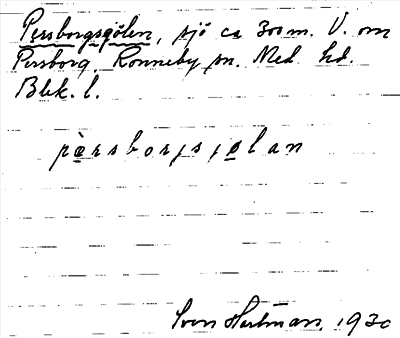 Persborgsgölen, sjö ca 300 m. V. om
Persborg. Ronneby sn. Med. hd.
Blek. l.
pærsborjsjølan
Sven Hultman, 1930